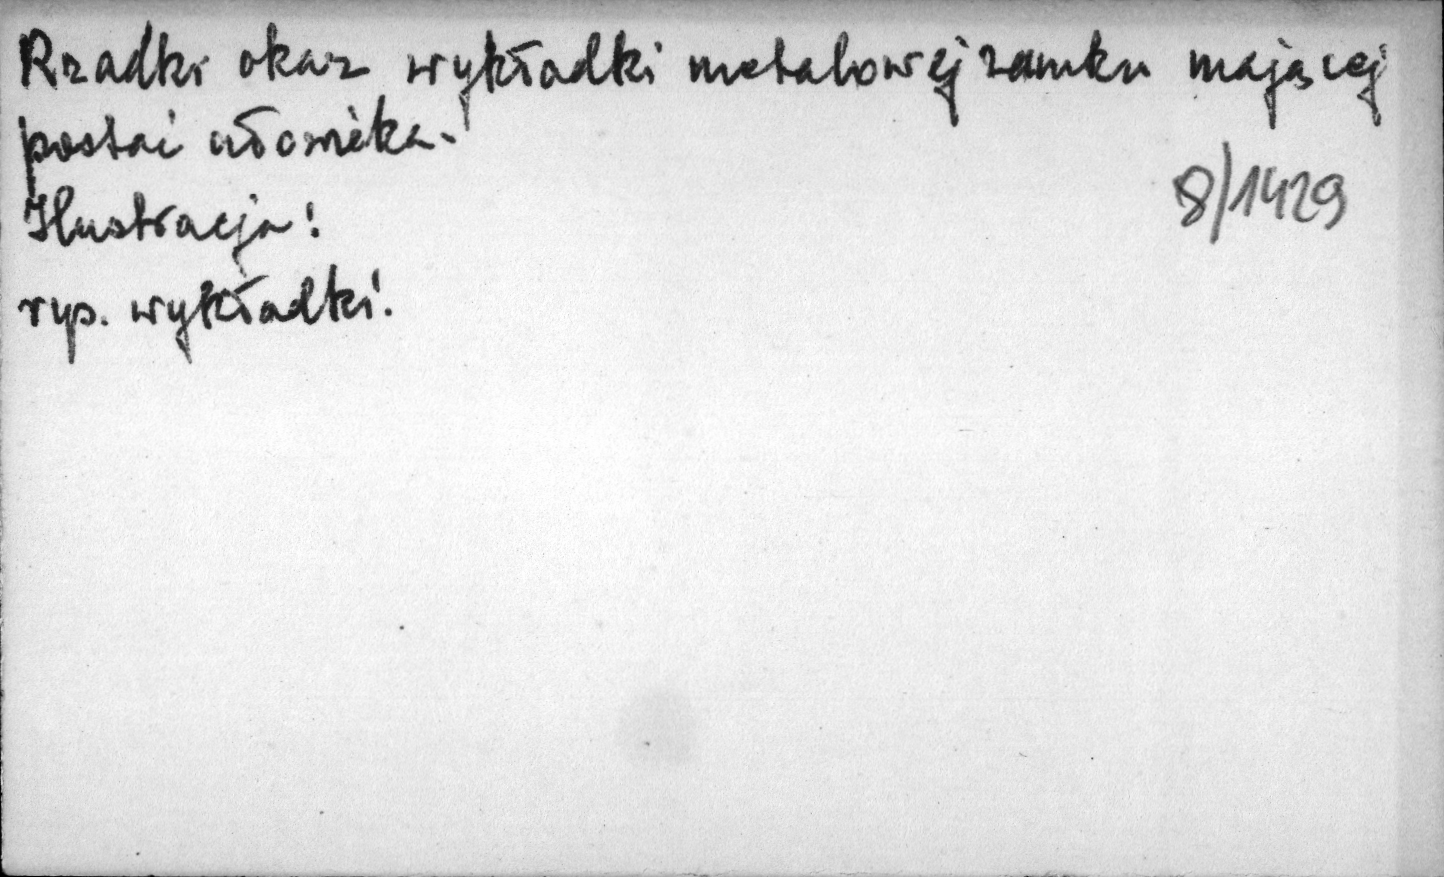 Rzadki okaz wykładki metalowej zamku mającej
postać człowieka.
8/1429
Ilustracja:
rys. wykładki.